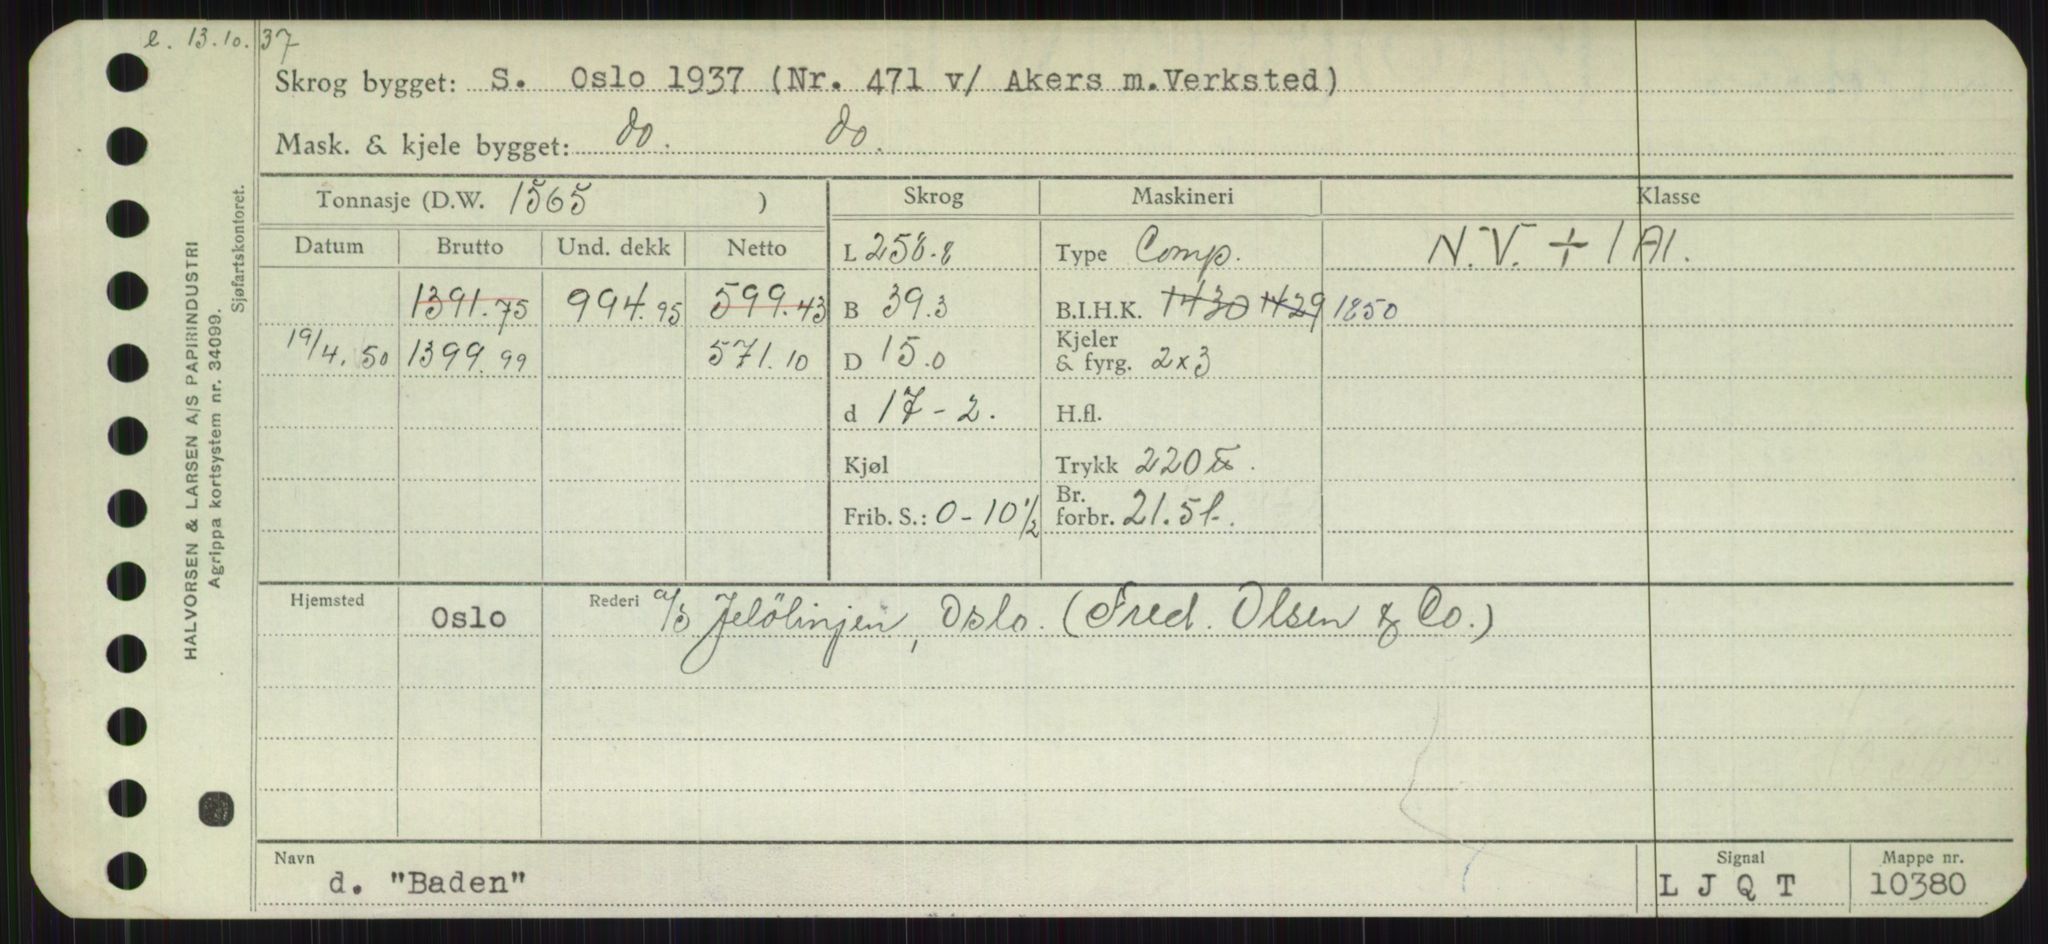 l. 13.10.37
Skrog bygget: S. Oslo 1937 (Nr. 471 v/ Akers m.Verksted)
Mask. & kjele bygget: do. do.
Tonnasje (D.W. 1565 ) Skrog Maskineri Klasse
Datum Brutto Und. dekk Netto L 258.8 Type Comp. N.V. + 1A1.
1391.75 994.95 599.43 B 39.3 B.I.H.K. 1430 1429 1850
19/4.50 1399.99 571.10 D 15.0 Kjeler & fyrg. 2x3
d 17-2. H.fl.
Kjøl Trykk 220 lb.
Frib. S.: 0-10½ Br. forbr. 21.5 t.
Hjemsted Oslo Rederi a/s Jelölinjen, Oslo. (Fred. Olsen & Co.)
Navn d. "Baden" Signal LJQT Mappe nr. 10380
HALVORSEN & LARSEN A/S PAPIRINDUSTRI
Agrippa kortsystem nr. 34099.
Sjøfartskontoret.